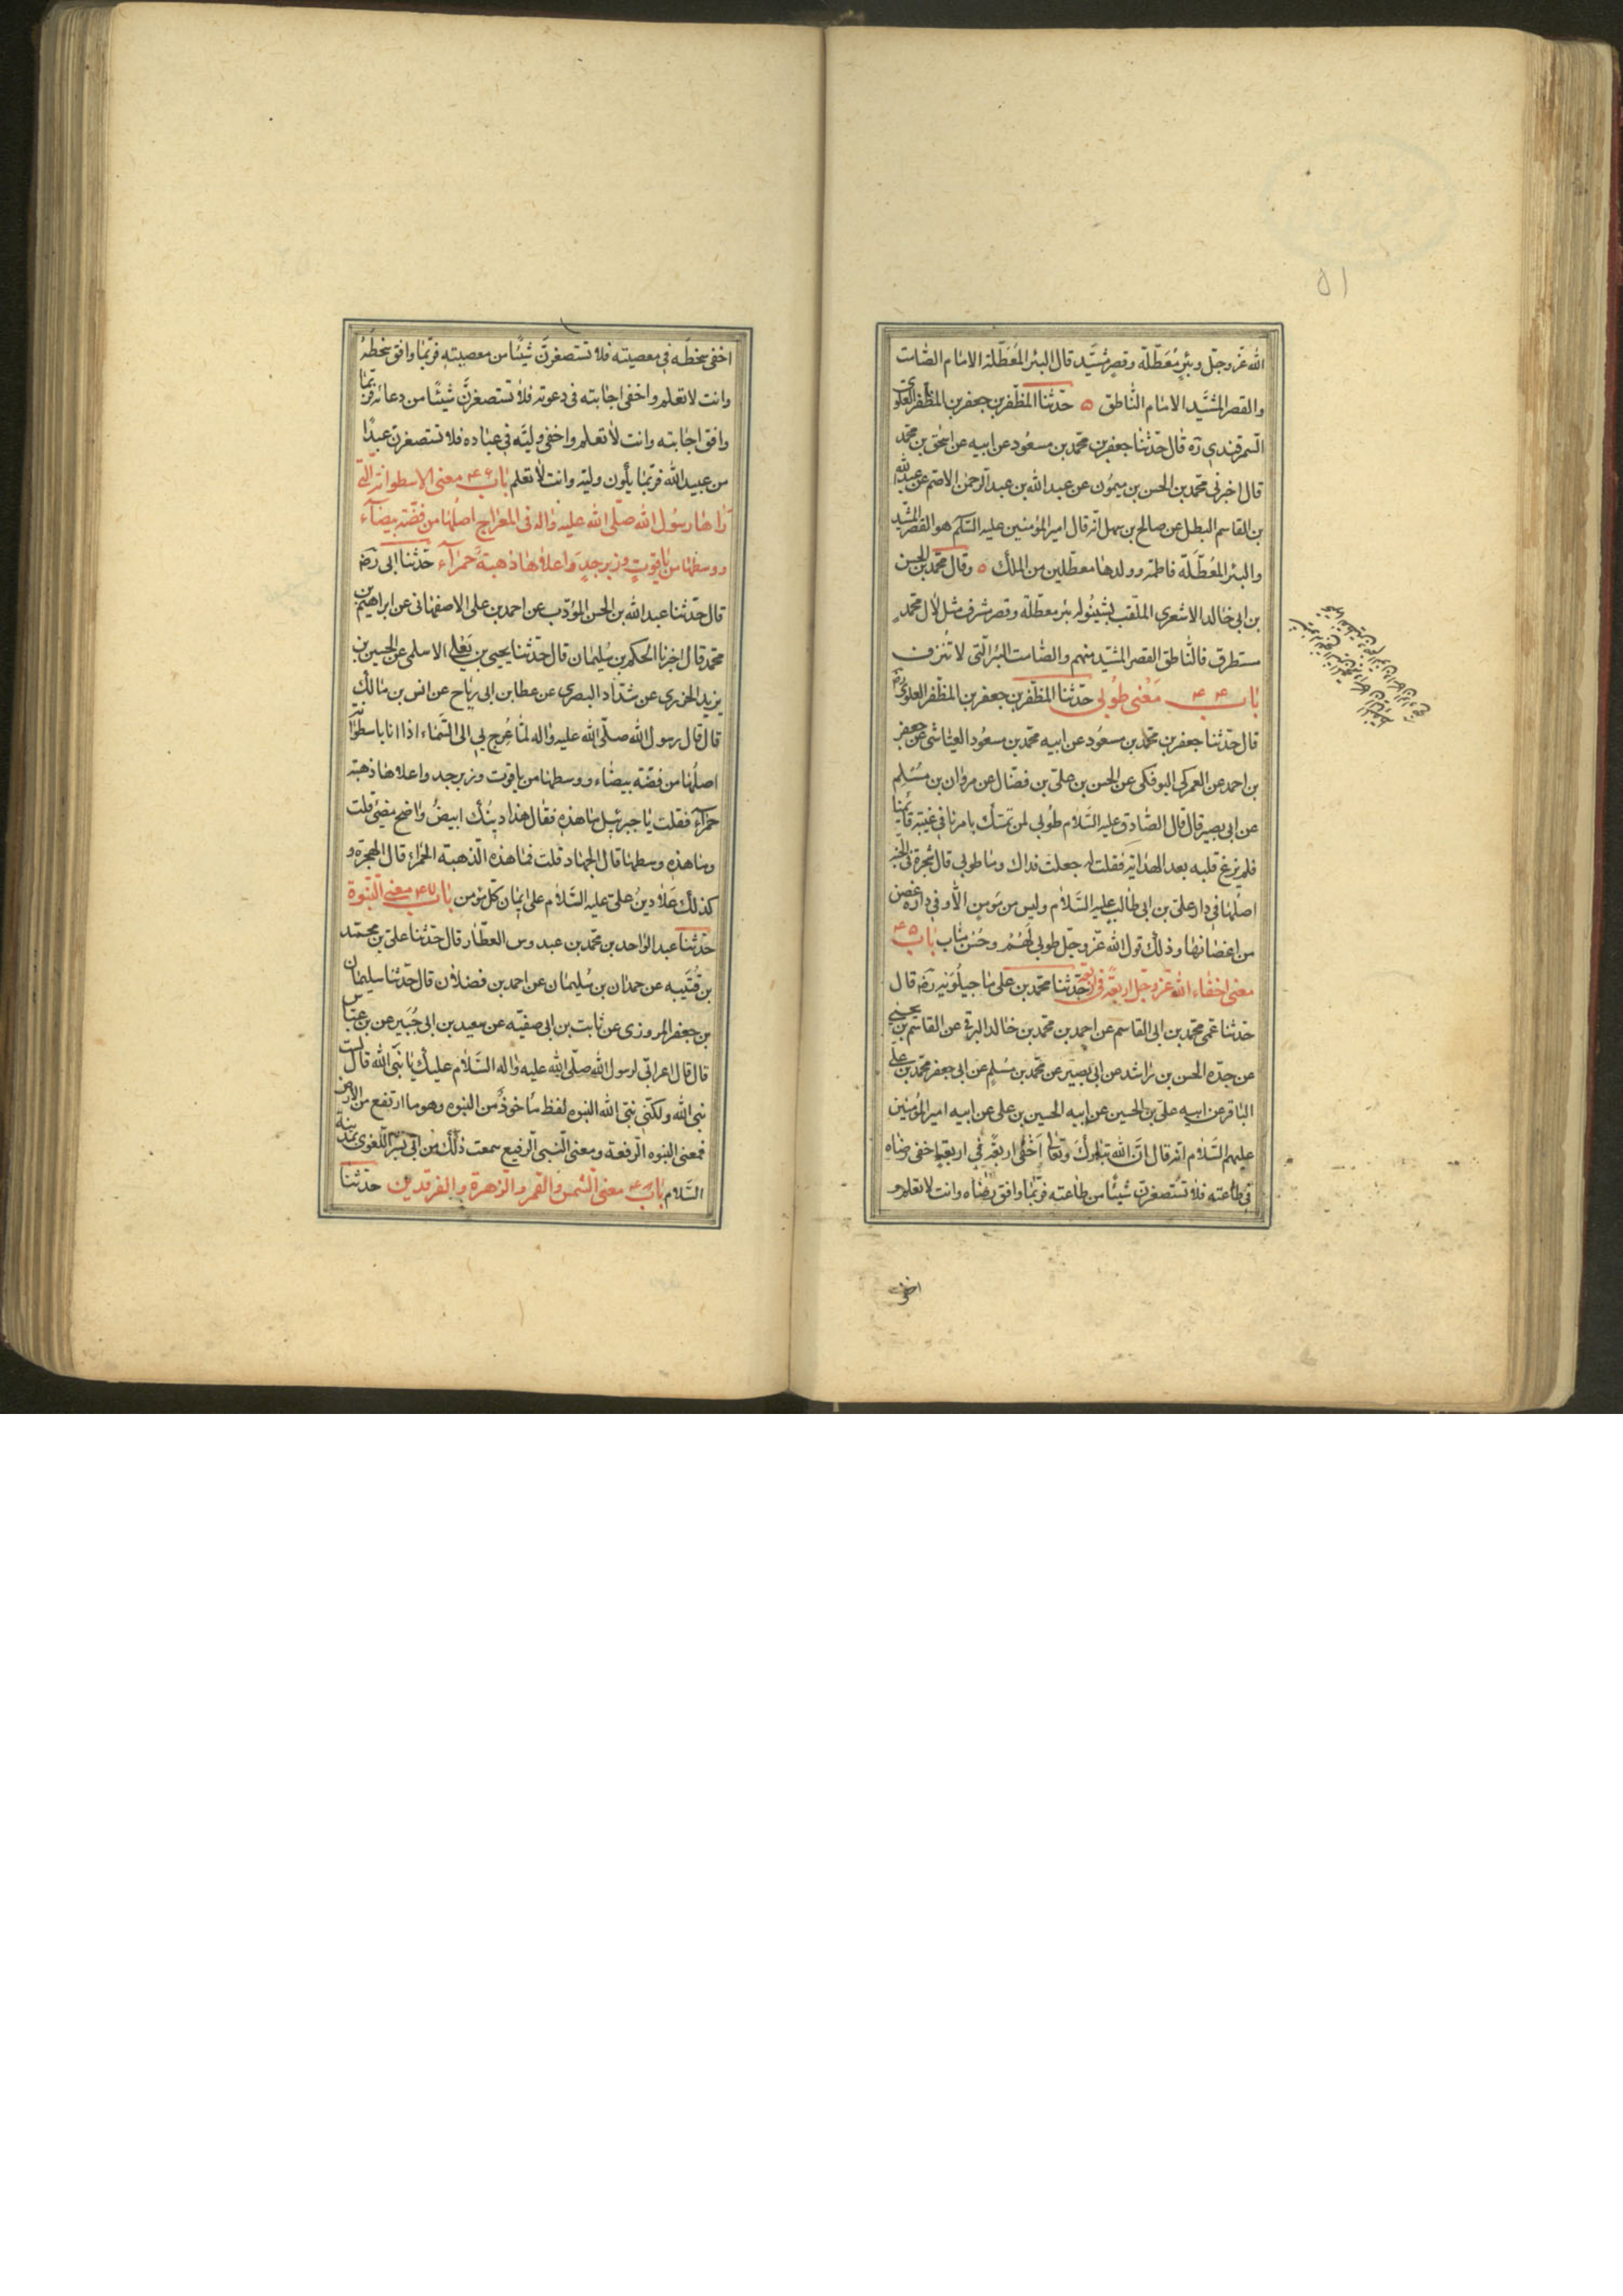 ٥١
الله عزّ وجلّ وبئر معطّلة وقصر مشيد قال البئر المعطّلة الامام الصّامت
والقصر المشيّد الامام النّاطق ٥ حدّثنا المظفّر بن جعفر بن المظفر العلوي
السّمرقندي ره قال حدّثنا جعفر بن محمّد بن مسعود عن ابيه عن اسحٰق بن محمّد
قال اخبرني محمّد بن الحسن بن ميمون عن عبدالله بن عبدالرحمٰن الاصمّ عن عبدالله
بن القاسم البطل عن صالح بن سهل انّه قال امير المؤمنين عليه السّلام هو القصر المشيد
والبئر المعطّلة فاطمة وولدها معطّلين من الملك ٥ وقال محمّد بن الحسن
بن ابي خالد الاشعري الملقّب بشينوله بئر معطّلة وقصر مشرف مثل لآل محمّدٍ
مستطرف فالنّاطق القصر المشيّد منهم والصّامت البئر الّتي لا تنزف
باب ۴۴ معنى طوبى حدّثنا المظفّر بن جعفر بن المظفّر العلوي ره
قال حدّثنا جعفر بن محمّد بن مسعود عن ابيه محمّد بن مسعود العيّاشي عن جعفر
بن احمد عن العمركي البوفكي عن الحسن بن علي بن فضّال عن مروان بن مسلم
عن ابي بصير قال قال الصّادق عليه السّلام طوبى لمن تمسّك بامرنا في غيبة قائمنا
فلم يزغ قلبه بعد الهداية فقلت له جعلت فداك وما طوبى قال شجرة في الجنّة
اصلها في دار علي بن ابي طالب عليه السّلام وليس من مؤمن الّا وفي داره غصن
من اغصانها وذلك قول الله عزّ وجلّ طوبى لهم وحسن مآب باب ۴۵
معنى اخفاء الله عزّ وجلّ اربعة في اربعة حدّثنا محمّد بن علي ماجيلويه رضه قال
حدّثنا عمّي محمّد بن ابي القاسم عن احمد بن محمّد بن خالد البرقي عن القاسم بن يحيى
عن جدّه الحسن بن راشد عن ابي بصير عن محمّد بن مسلم عن ابي جعفر محمّد بن علي
الباقر عن ابيه علي بن الحسين عن ابيه الحسين بن علي عن ابيه امير المؤمنين
عليهم السّلام انّه قال انّ الله تبارك وتعالى اخفى اربعة في اربعة اخفى رضاه
في طاعته فلا تستصغرنّ شيئًا من طاعته فربّما وافق رضاه وانت لا تعلم و
اخفى
اخفى سخطه في معصيته فلا تستصغرنّ شيئًا من معصيته فربّما وافق سخطه
وانت لا تعلم واخفى اجابته في دعوته فلا تستصغرنّ شيئًا من دعائه فربّما
وافق اجابته وانت لا تعلم واخفى وليّه في عباده فلا تستصغرنّ عبدًا
من عبيد الله فربّما يكون وليّه وانت لا تعلم باب ۴۶ معنى الاسطوانة الّتي
رآها رسول الله صلّى الله عليه وآله في المعراج اصلها من فضّة بيضاء
ووسطها من ياقوتٍ وزبرجدٍ واعلاها ذهبة حمراء حدّثنا ابي رضه
قال حدّثنا عبدالله بن الحسن المؤدّب عن احمد بن علي الاصفهاني عن ابراهيم بن
محمّد قال اخبرنا الحكم بن سليمان قال حدّثنا يحيى بن يعلى الاسلمي عن الحسين بن
يزيد الخزري عن شدّاد البصري عن عطا بن ابي رياح عن انس بن مالك
قال قال رسول الله صلّى الله عليه وآله لمّا عرج بي الى السّماء اذا انا باسطوانة
اصلها من فضّة بيضاء ووسطها من ياقوت وزبرجد واعلاها ذهبة
حمراء فقلت يا جبرئيل ما هذه فقال هذا دينك ابيض واضح مضيئ قلت
وما هذه وسطها قال الجهاد قلت فما هذه الذهبة الحمراء قال الهجرة و
كذلك علا دين عليّ عليه السّلام على ايمان كلّ مؤمن باب ۴۷ معنى النّبوة
حدّثنا عبدالواحد بن محمّد بن عبدوس العطّار قال حدّثنا علي بن محمّد
بن قتيبه عن حمدان بن سليمان عن احمد بن فضلان قال حدّثنا سليمان
بن جعفر المروزى عن ثابت بن ابي صفيّه عن سعيد بن ابي جبير عن بن عبّاس
قال قال اعرابّي لرسول الله صلّى الله عليه وآله السّلام عليك يا نبّي الله قال لست
نبئ الله ولكنّني نبيّ الله النبوه لفظ مأخوذ من النبوه وهو ما ارتفع من الارض
فمعنى النبوه الرّفعة ومعنى النّبي الرفيع سمعت ذلك من ابي بشر اللغوى بمدينة
السّلام باب ۴۸ معنى الشمس والقمر والزهرة والفرقدين حدّثنا